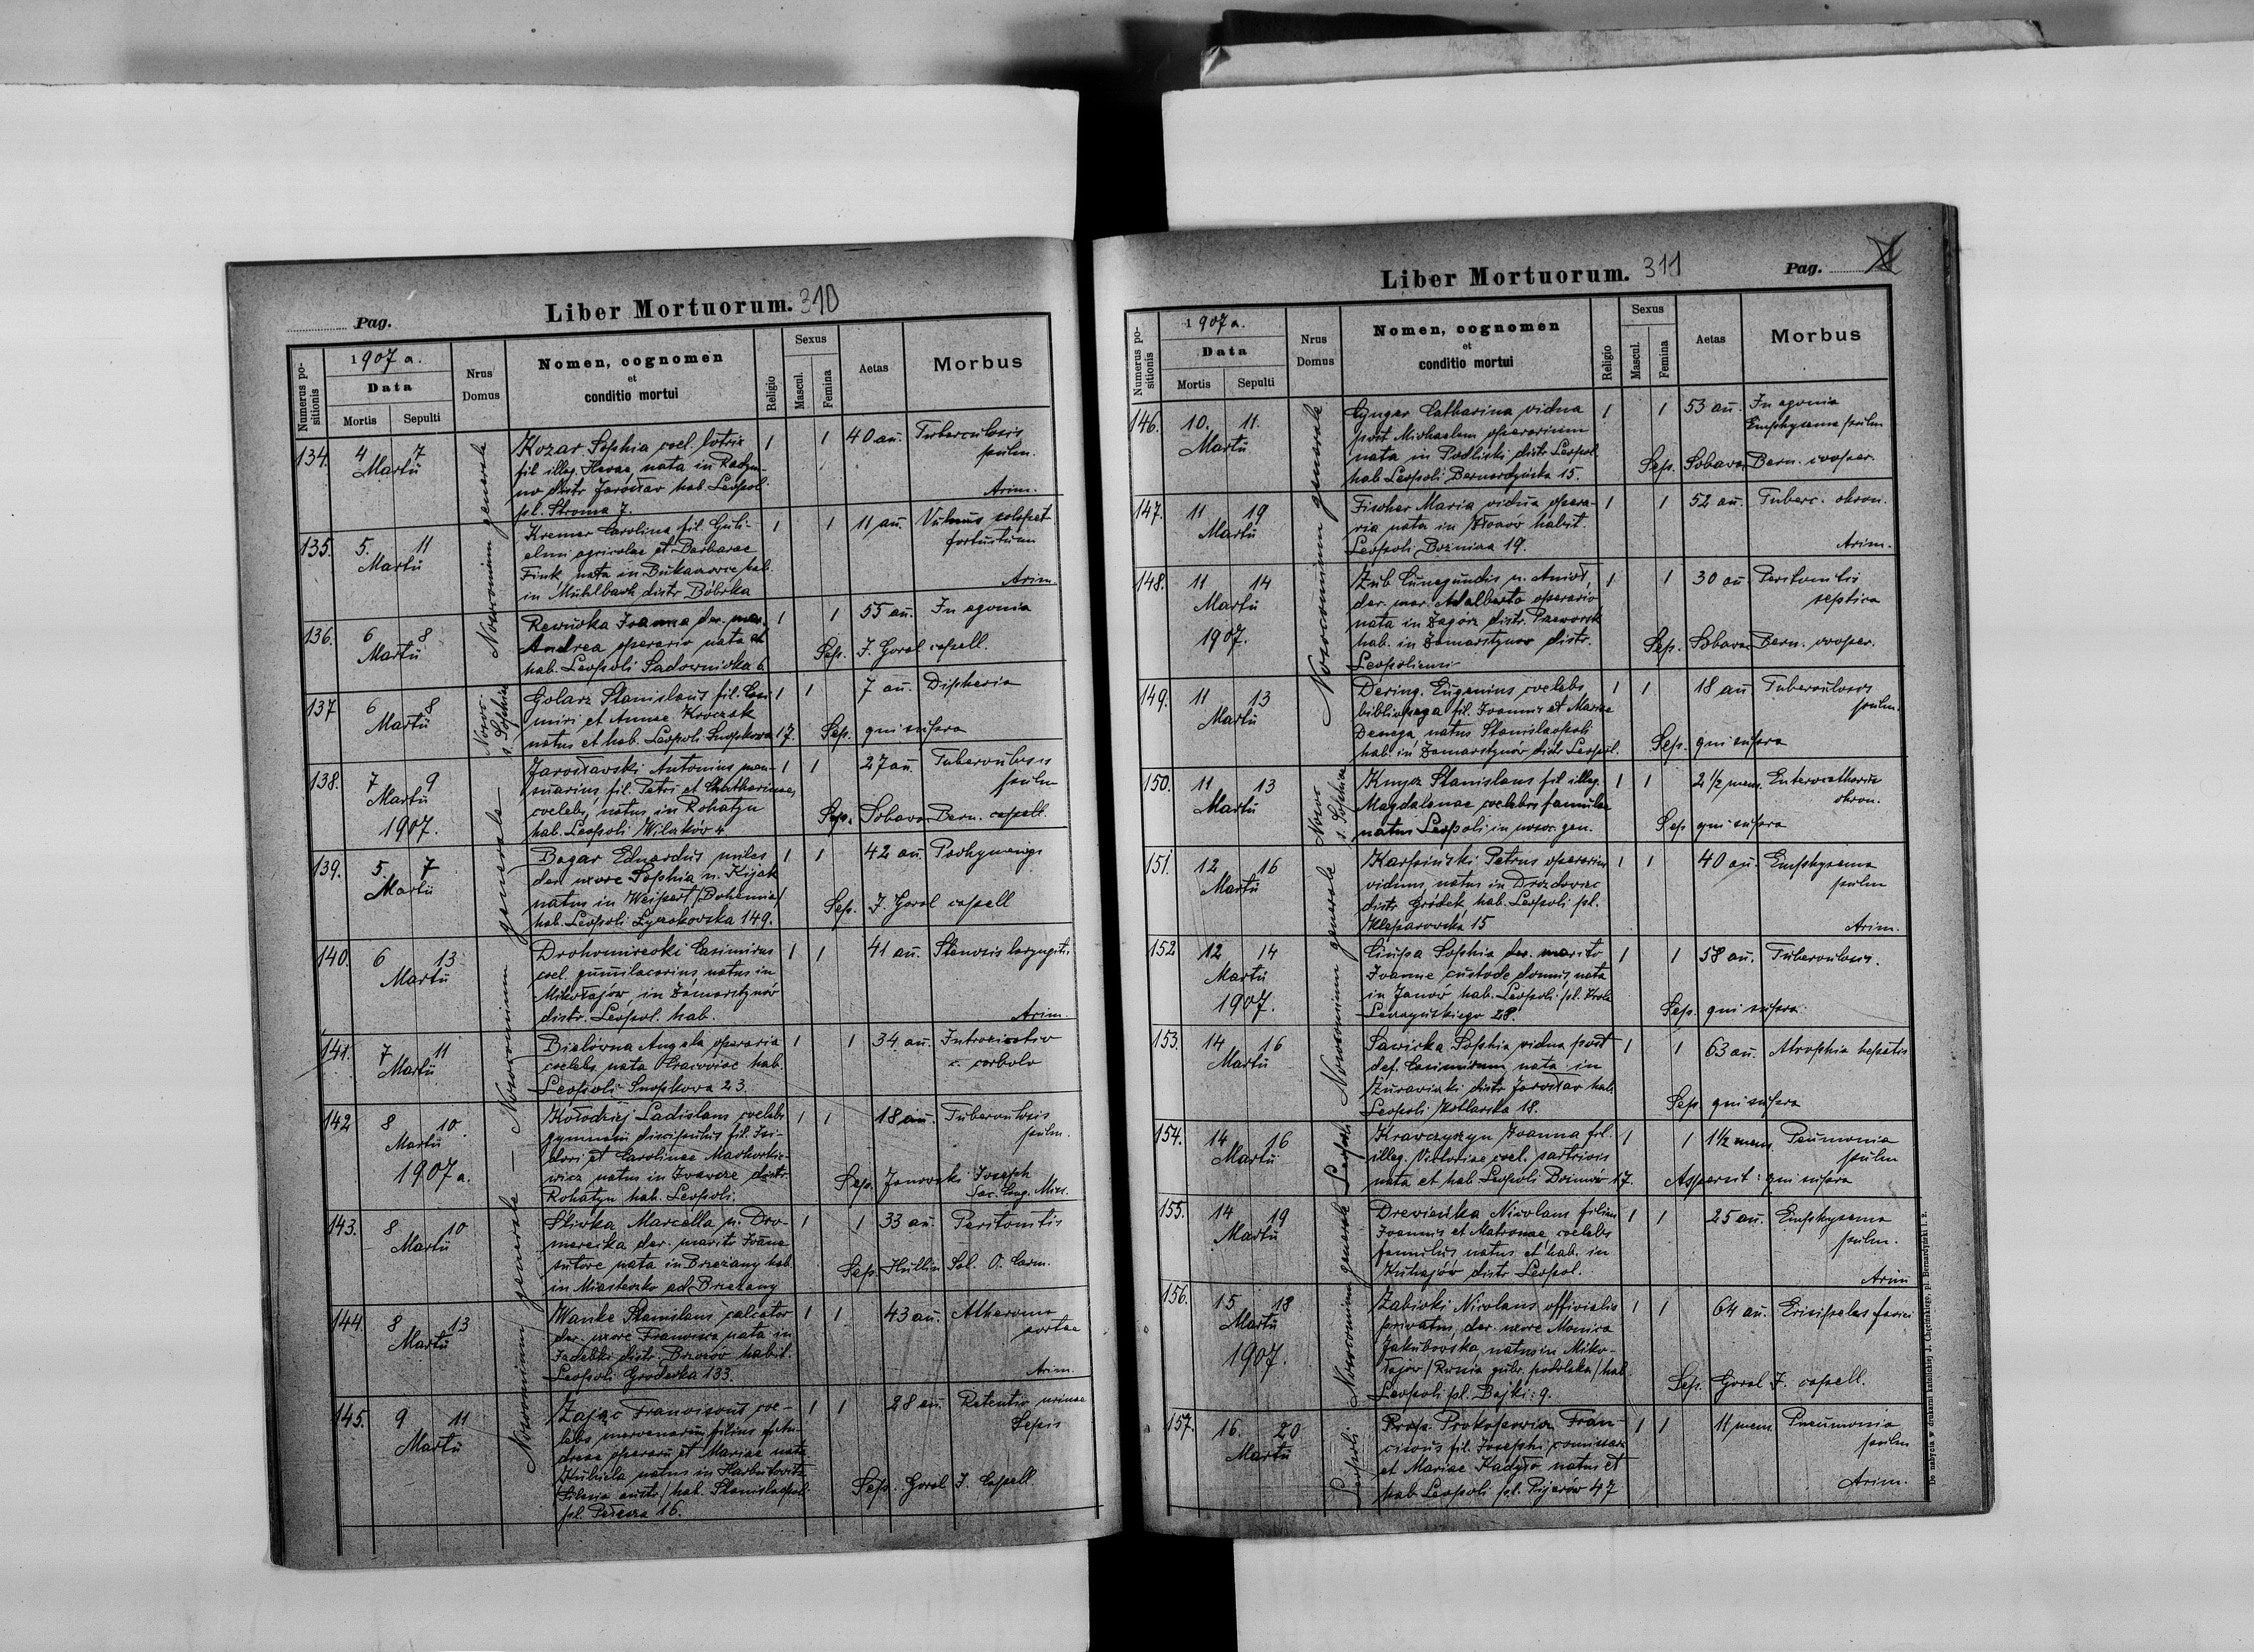 Pag.
Liber Mortuorum. 310
Numerus positionis
1907 a.
Data
Mortis Sepulti
Nrus Domus
Nomen, cognomen
et
conditio mortui
Religio
Sexus
Mascul. Femina
Aetas
Morbus
Nosocomium generale
134. 4 7 Martii
Kozar Sophia coel. lotrix
fil illeg. Hevae, nata in Radym-
no distr Jarosław hab. Leopoli
pl. Stroma 7.
1 1 40 an. Tuberculosis
pulm.
Arim.
135. 5. 11 Martii
Kremer Carolina fil. Guli-
elmi agricolae et Barbarae
Fink nata in hab.
in Mühlbach distr Bóbrka
1 1 11 an. Vulnus sclopet
fortuitum
Arim.
136. 6 8 Martii
Joanna der. mar.
Andrea operario nata et
hab. Leopoli Sadownicka 6
1 1 55 an. In agonia
Sep. J. Goral capell.
Nosoc. s Sophiae
137 6 8 Martii
Golarz Stanislaus fil. Casi-
miri et Annae Kroczak
natus et hab. Leopoli Snopkowa 17.
1 1 7 an. Diptheria
Sep. qui supra
138. 7 9 Martii
1907.
Jarosławski Antonius men-
suarius, fil. Petri et Catharinae,
coelebs, natus in Rohatyn
hab. Leopoli Wilków 4
1 1 27 an. Tuberculosis
pulm
Sep. Bern. capell.
Nosocomium generale
139. 5. 7 Martii
Bagar Eduardus miles
der uxore Sophia n. Kijak
natus in Weipert /Bohemia/
hab. Leopoli Łyczakowska 149.
1 1 42 an. Pachymenigs
Sep. J. Goral capell
140. 6 13 Martii
Drohomirecki Casimirus
coel. natus in
Mikołajów, in Zamarstynów
distr. Leopol. hab.
1 1 41 an. Stenosis laryngitis
Arim.
141. 7 11 Martii
Bielówna Angela operaria
coelebs nata Cracoviae hab.
Leopoli Snopkowa 23.
1 1 34 an. Intoxicatio
c. carbolo
Nosocomium generale
142 8 10. Martii
1907 a.
Kołodziej Ladislaus coelebs
gymnasii discipulus fil. Isi-
dori et Carolinae Mackorkie-
wicz natus in distr.
Rohatyn hab. Leopoli.
1 1 18 an. Tuberculosis
pulm.
Sep. Janowski Joseph
Sac. Cong. Miss.
143. 8 10 Martii
Śliwka Marcella n. Dro-
mirecka der. marito Joanne
sutore nata in Brzeżany hab
in Miasteczko ad Brzeżany
1 1 33 an. Peritonitis
Sep. Hullin Sal. O. Carm.
144. 8 13 Martii
Wanke Stanislaus calcator
der. uxore Francisca nata in
Jadebki distr. Brzozów habit.
Leopoli Grodecka 133.
1 1 43 an. Atheroma
aortae
Arim.
145. 9 11 Martii
Zając Franciscus coe-
lebs mercenarius filius An-
dreae operarii et Mariae nata
Kubiela natus in Harbutowitz
/Silesia austr./ hab. Stanislaopol
pl. 16.
1 1 28 an. Retentio urinae
Sepsis
Sep. Goral J. Capell
Liber Mortuorum. 311
Pag.
Numerus positionis
1907 a.
Data
Mortis Sepulti
Nrus Domus
Nomen, cognomen
et
conditio mortui
Religio
Sexus
Mascul. Femina
Aetas
Morbus
Nosocomium generale
146. 10. 11. Martii
Gynger Catharina vidua
post Michaelem operarium
nata in Podliski distr Leopol
hab Leopoli Bernardyńska 15.
1 1 53 an. In agonia
Emphysema pulm
Sep. Bern. cooper.
147. 11 19 Martii
Fischer Maria vidua opera-
ria nata in Złoczów habit.
Leopoli Boźnicza 19.
1 1 52 an. Tuberc. chron.
Arim.
148. 11 14 Martii
1907.
Zub Cunegundis n. Anioł,
der. mar. Adalberto operario
nata in Zagórz distr. Przeworsk
hab. in Zamarstynow distr.
Leopoliensi
1 1 30 an. Peritonitis
septica
Sep. Bern. cooper.
149. 11 13 Martii
Dering. Eugenius coelebs
bibliopega fil. Joannis et Mariae
Denega natus Stanislaopoli
hab. in Zamarstynów distr Leopol.
1 1 18 an Tuberculosis
pulm.
Sep. qui supra
Nosoc s. Sophiae
150. 11 13 Martii
Stanislaus fil illeg.
Magdalenae coelebis famulae
natus Leopoli in nosoc. gen.
1 1 2 1/2 mens. Enterocatharus
chron.
Sep qui supra
Nosocomium generale
151. 12 16 Martii
Karpiński Petrus operarius
viduus, natus in Drozdowice
distr Gródek hab. Leopoli pl.
Kleparowska 15
1 1 40 an. Emphysema
pulm
Arim.
152 12 14 Martii
1907.
Ciupa Sophia der. marito
Joanne custode domus nata
in Janów, hab. Leopoli pl. Króla
Leszczyńskiego 28.
1 1 58 an. Tuberculosis.
Sep. qui supra
153. 14 16 Martii
Sawicka Sophia vidua post
def. Casimirum nata in
Żurawiczki distr Jarosław hab
Leopoli Kotlarska 18.
1 1 63 an. Atrophia hepatis
Sep. qui supra
Nosocomium generale Leopoli
154. 14 16 Martii
Krawczyszyn Joanna fil.
illeg. Victoriae coel. sartricis
nata et hab Leopoli 17.
1 1 1 1/2 mens. Peumonia
pulm
Aspersit: qui supra
155. 14 19 Martii
Drewieńka Nicolaus filius
Joannis et Matronae, coelebs
famulus natus et hab. in
Kuhajów distr Leopol.
1 1 25 an. Emphysema
pulm.
Arim
156. 15 18 Martii
1907.
Zabicki Nicolaus officialis
privatus, der. uxore Monica
Jakubowska, natus in Miko-
łajów /Rosia gubr. podolska/ hab.
Leopoli pl. Bajki: 9.
1 1 64 an. Erisipelas faciei
Sep. Goral J. capell.
Leopoli
157. 16. 20 Martii
Prokopowicz Fran-
ciscus fil. Josephi comissar.
et Mariae Kadyło natus et
hab Leopoli pl. Pijarów 47
1 1 11 mens. Pneumonia
pulm
Arim.
Do nabycia w drukarni katolickiej J. Chęcińskiego, pl. Bernardyński l. 2.